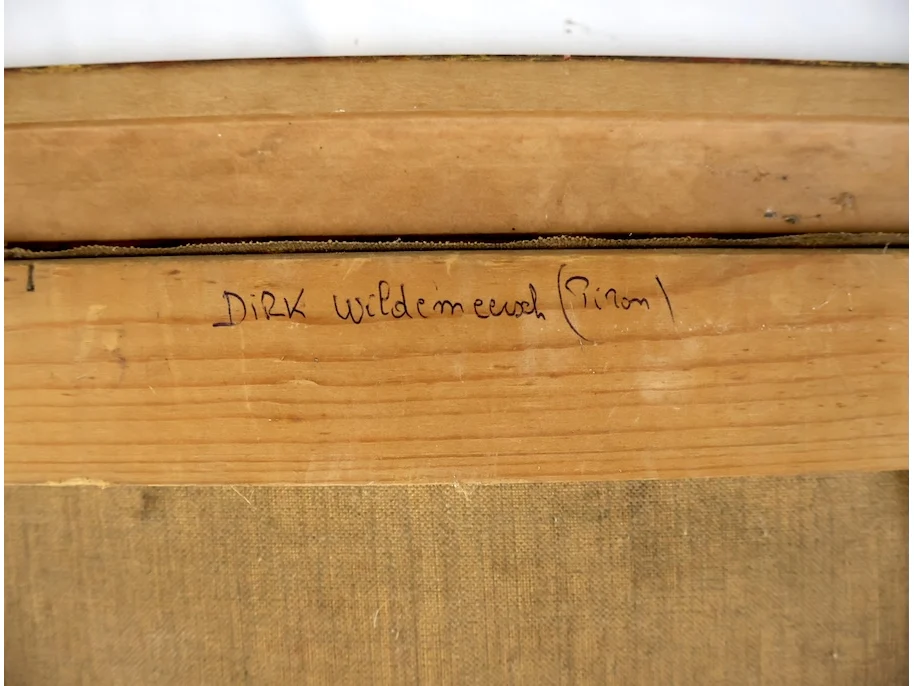 DiRK Wildemeersch (Piron)